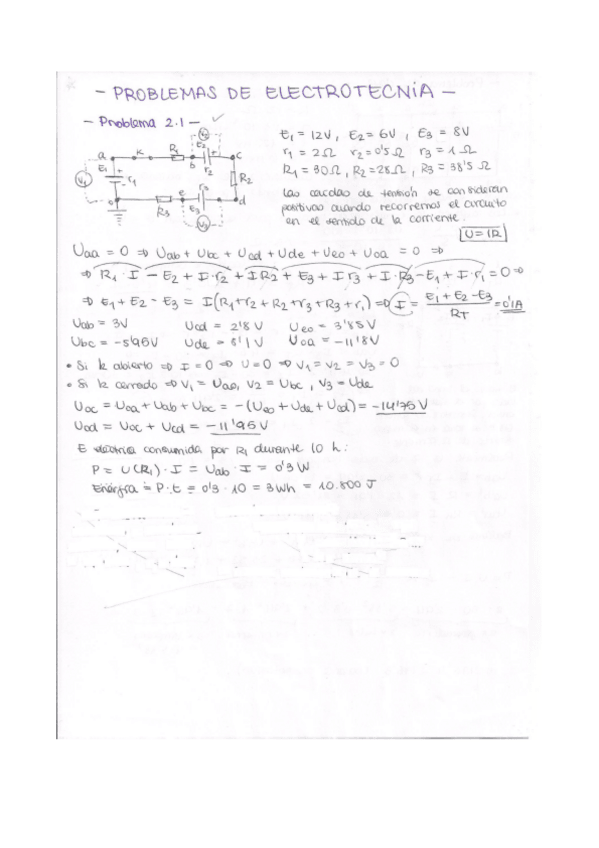 - PROBLEMAS DE ELECTROTECNIA -
- Problema 2.1 - ✓
E₁ = 12V , E₂ = 6V , E₃ = 8V
r₁ = 2Ω r₂ = 0'5Ω r₃ = 1Ω
R₁ = 30Ω , R₂ = 28Ω , R₃ = 38'5 Ω
Las caídas de tensión se consideran
positivas cuando recorremos el circuito
en el sentido de la corriente.
U = IR
a k R₁ b E₂ r₂ c
V₂
E₁ r₁ V₁
R₂
o R₃ e E₃ r₃ d
V₃
Uaa = 0 ⇒ Uab + Ubc + Ucd + Ude + Ueo + Uoa = 0 ⇒
⇒ R₁ · I - E₂ + I · r₂ + I R₂ + E₃ + I r₃ + I · R₃ - E₁ + I · r₁ = 0 ⇒
⇒ E₁ + E₂ - E₃ = I(R₁ + r₂ + R₂ + r₃ + R₃ + r₁) ⇒ I = (E₁ + E₂ - E₃) / RT = 0'1A
Uab = 3V Ucd = 2'8 V Ueo = 3'85 V
Ubc = -5'95V Ude = 8'1 V Uoa = -11'8V
• Si k abierto ⇒ I = 0 ⇒ U = 0 ⇒ V₁ = V₂ = V₃ = 0
• Si k cerrado ⇒ V₁ = Uao, V₂ = Ubc , V₃ = Ude
Uoc = Uoa + Uab + Ubc = -(Ueo + Ude + Ucd) = -14'75 V
Uod = Uoc + Ucd = -11'95 V
E eléctrica consumida por R₁ durante 10 h:
P = U(R₁) · I = Uab · I = 0'3 W
Energía = P · t = 0'3 · 10 = 3Wh = 10.800 J